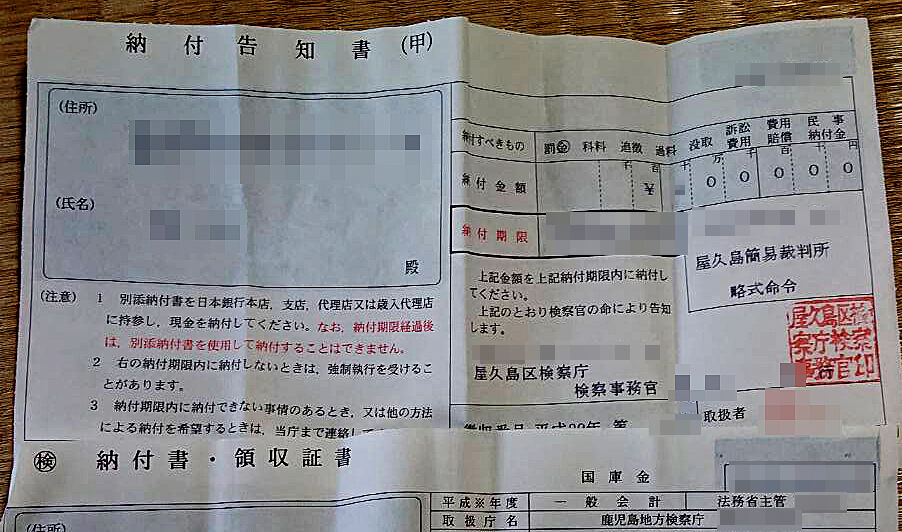 納付告知書(甲)
(住所)
(氏名)
殿
納付すべきもの 罰金 科料 追徴 過料 没取 訴訟費用 費用賠償 民事納付金
納付金額 百 ¥ 千 万 0 千 0 百 0 十 0 円 0
納付期限
屋久島簡易裁判所
略式命令
上記金額を上記納付期限内に納付し
てください。
上記のとおり検察官の命により告知
します。
屋久島区検察庁
検察事務官
取扱者
屋久島区検
察庁検察
事務官印
(注意) 1 別添納付書を日本銀行本店,支店,代理店又は歳入代理店
に持参し,現金を納付してください。なお,納付期限経過後
は,別添納付書を使用して納付することはできません。
2 右の納付期限内に納付しないときは,強制執行を受けるこ
とがあります。
3 納付期限内に納付できない事情のあるとき,又は他の方法
による納付を希望するときは,当庁まで連絡して
徴収番号 平成 年 第
検 納付書・領収証書
国庫金
平成※年度 一般会計 法務省主管
取扱庁名 鹿児島地方検察庁
(住所)